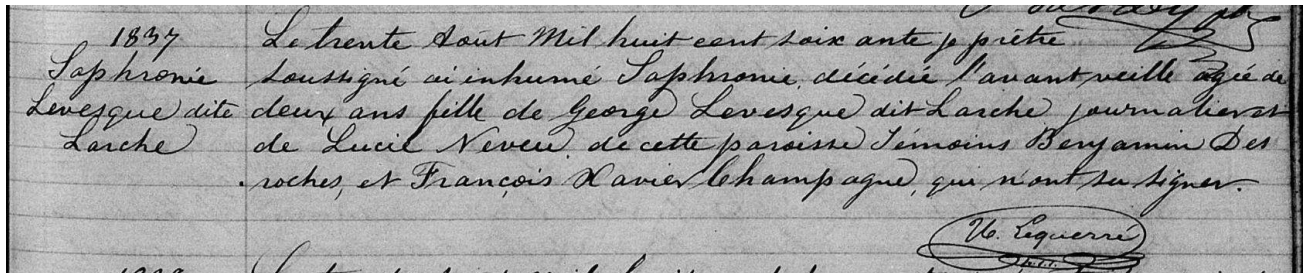 1837
Sophronie
Levesque dite
Larche
Le trente Août Mil huit cent soixante je prêtre
soussigné ai inhumé Sophronie, décédée l'avant veille agée de
deux ans fille de George Levesque dit Larche journalier et
de Lucie Neveu de cette paroisse Témoins Benjamin Des
roches, et François Xavier Champagne, qui n'ont su signer.